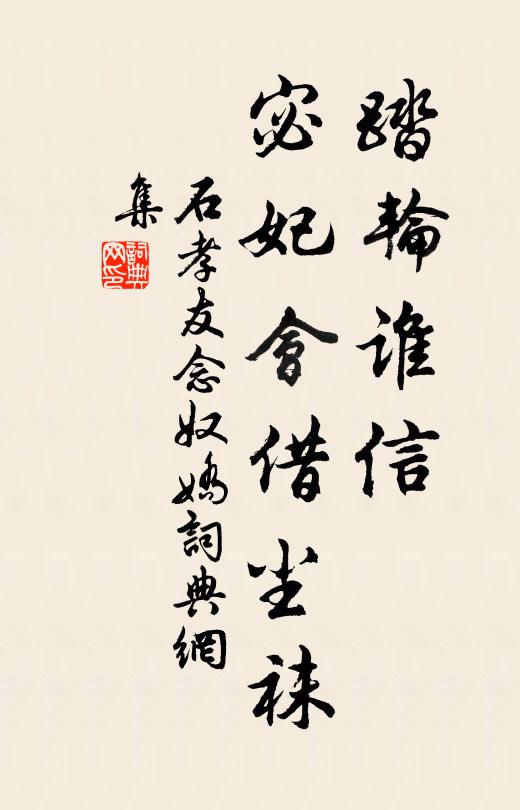 踏輪誰信
宓妃會借尘袜
石孝友念奴嬌詞典網
集
詞典
网印